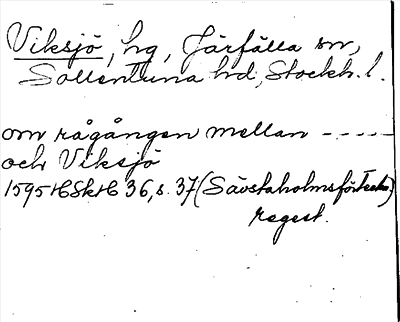 Viksjö, hg, Järfälla sn,
Sollentuna hd, Stockh. l.
om rågången mellan -----
och Viksjö
1595 HSkH 36, s. 37 (Sävstaholmsförteckn.)
regest.